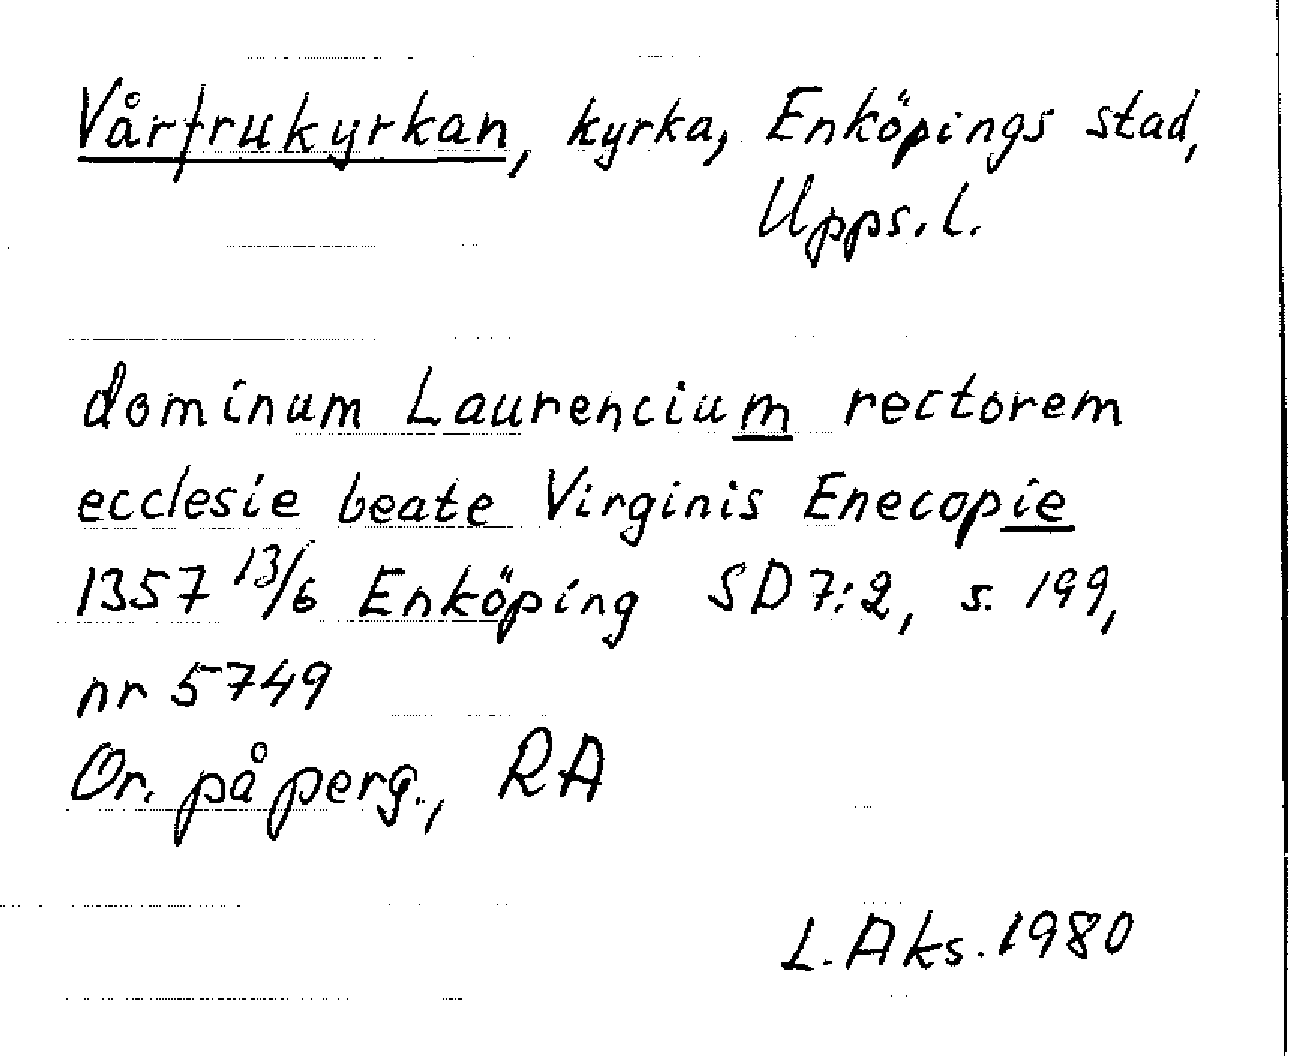 Vårfrukyrkan, kyrka, Enköpings stad,
Upps. l.
dominum Laurencium rectorem
ecclesie beate Virginis Enecopie
1357 13/6 Enköping SD 7:2, s. 199,
nr 5749
Or. på perg., RA
L. Aks. 1980